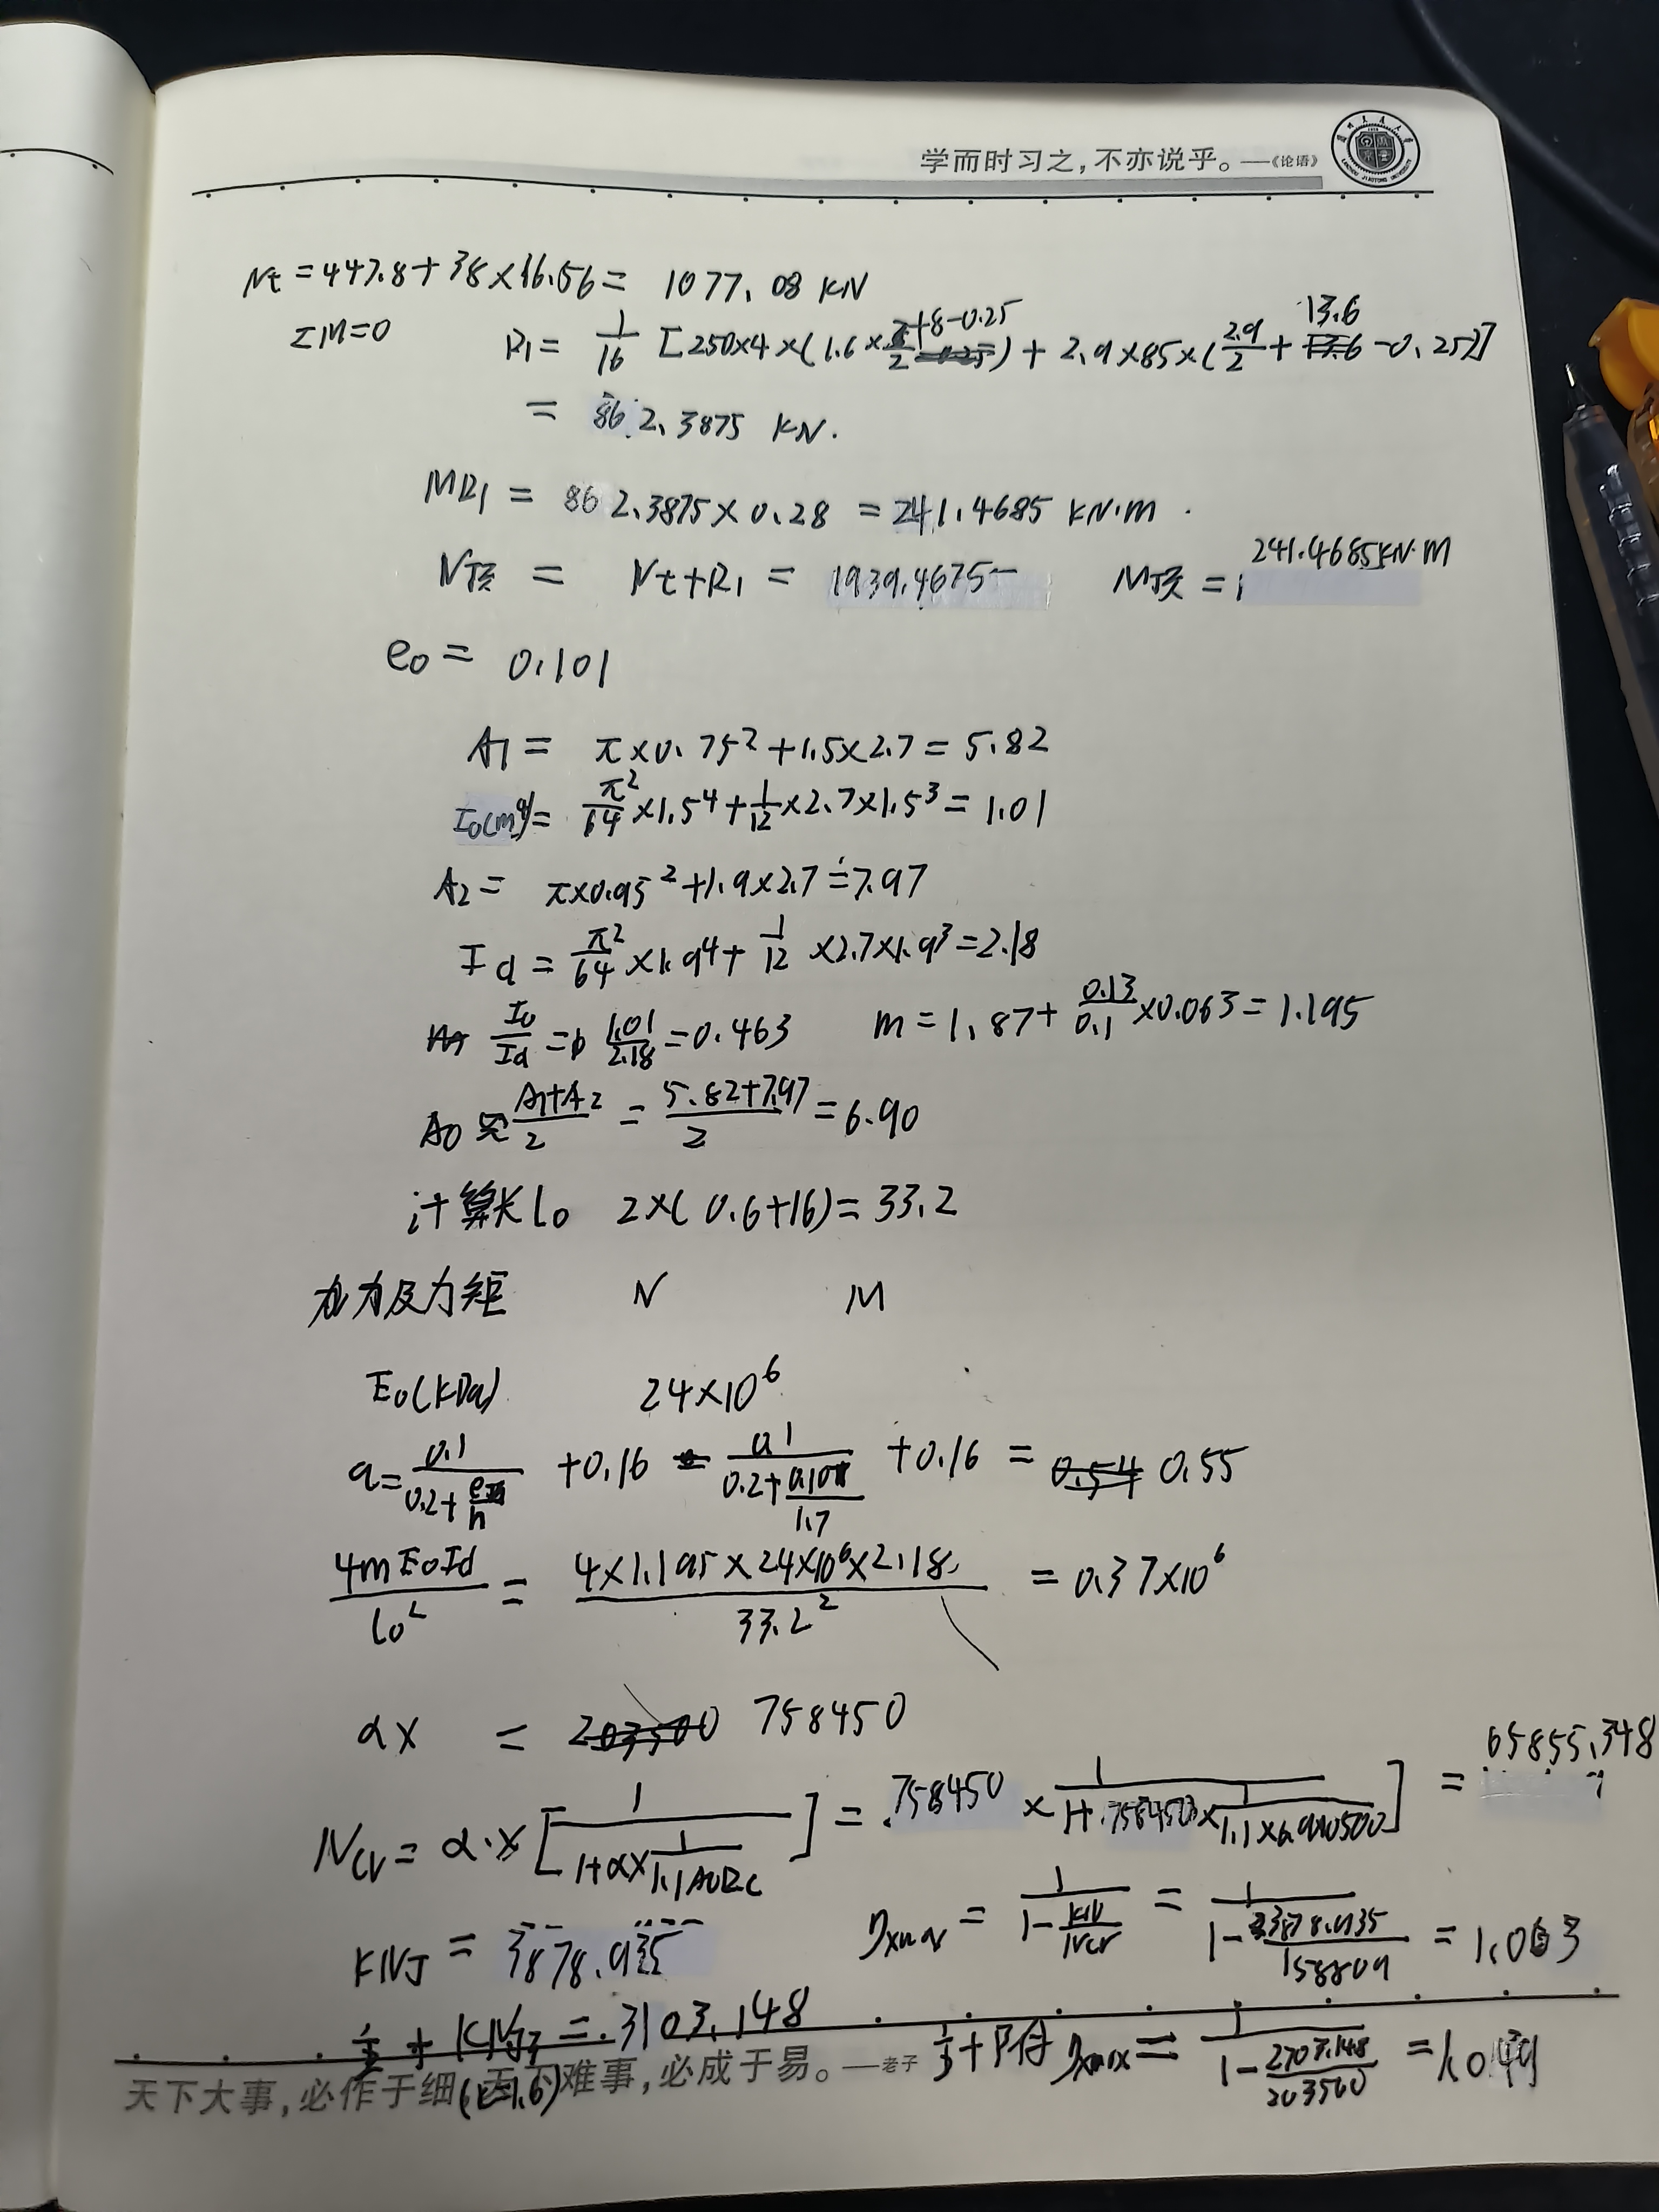 学而时习之,不亦说乎。——《论语》
LANZHOU JIAOTONG UNIVERSITY
Nt = 447.8 + 38 × 16.56 = 1077.08 KN
ΣM=0 R1 = 1/16 [250×4×(1.6×/2+8-0.25) + 2.9×85×(2.9/2 + 13.6 - 0.25)]
= 862.3875 KN.
MR1 = 862.3875 × 0.28 = 241.4685 KN·m.
N顶 = Nt+R1 = 1939.4675 M顶 = 241.4685KN·M
e0 = 0.101
A1 = π×0.75² + 1.5×2.7 = 5.82
I0(m⁴) = π²/64 ×1.5⁴ + 1/12 ×2.7×1.5³ = 1.01
A2 = π×0.95² + 1.9×2.7 = 7.97
Id = π²/64 ×1.9⁴ + 1/12 ×2.7×1.9³ = 2.18
I0/Id = 1.01/2.18 = 0.463 m = 1.87 + 0.13/0.1 ×0.063 = 1.195
A0 ≌ A1+A2/2 = 5.82+7.97/2 = 6.90
计算长l0 2×(0.6+16) = 33.2
力及力矩 N M
E0(KPa) 24×10⁶
a = 0.1/0.2+e/h + 0.16 = 0.1/0.2+0.101/1.7 + 0.16 = 0.55
4mE0Id/l0² = 4×1.195×24×10⁶×2.18/33.2² = 0.37×10⁶
αx = 758450
Ncr = α·x[1/1+αx 1/1.1A0Rc] = 758450 × 1/1+758450×1/1.1×6.90×10500] = 65855.348
KNJ = 3878.935 ηxmax = 1/1-KN/Ncr = 1/1-3878.935/158809 = 1.063
+ KNJ = 3103.148 + 附 ηxmax = 1/1-2707.148/203500 = 1.0
(k=1.6)
天下大事,必作于细;天下难事,必成于易。——老子